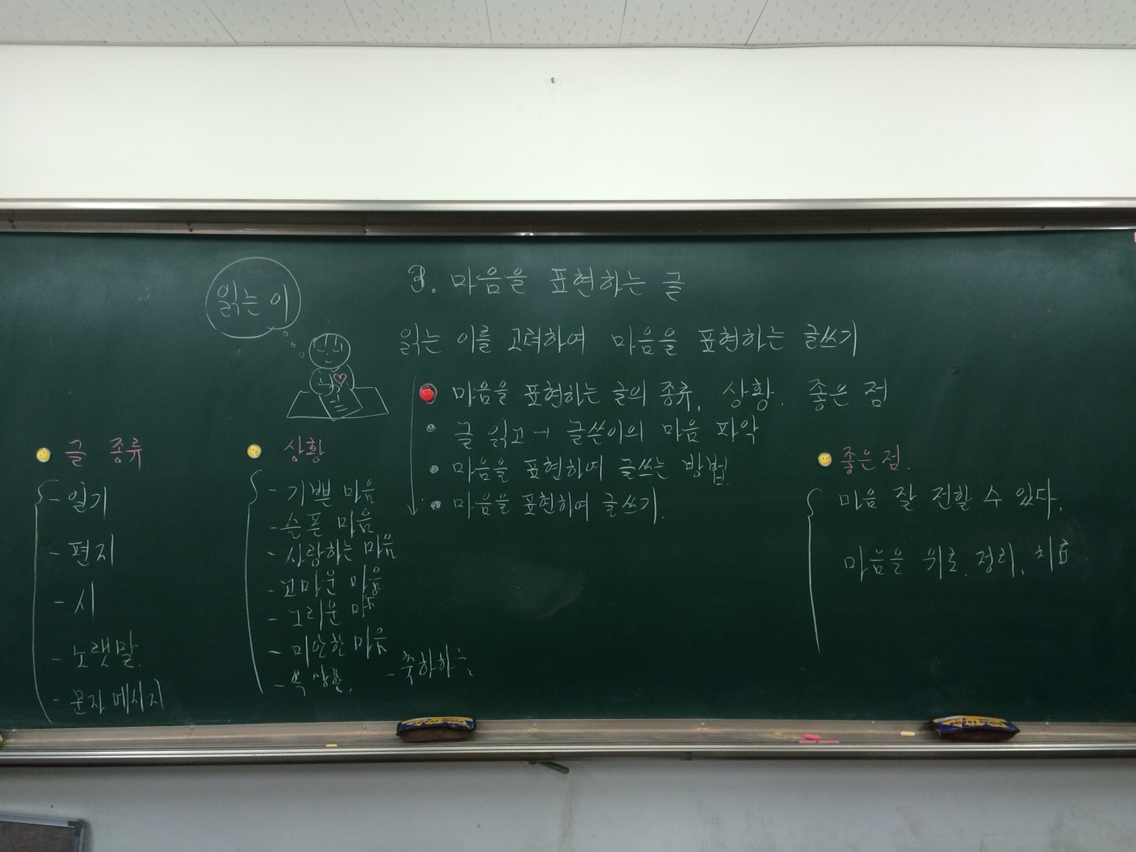 읽는 이
3. 마음을 표현하는 글
읽는 이를 고려하여 마음을 표현하는 글쓰기
마음을 표현하는 글의 종류, 상황, 좋은 점
글 읽고 → 글쓴이의 마음 파악
마음을 표현하여 글쓰는 방법
마음을 표현하여 글쓰기.
글 종류
- 일기
- 편지
- 시
- 노랫말.
- 문자 메시지
상황
- 기쁜 마음
- 슬픈 마음
- 사랑하는 마음
- 고마운 마음
- 그리운 마음
- 미안한 마음
- 축하하는
좋은 점.
마음 잘 전할 수 있다.
마음을 위로, 정리, 치료